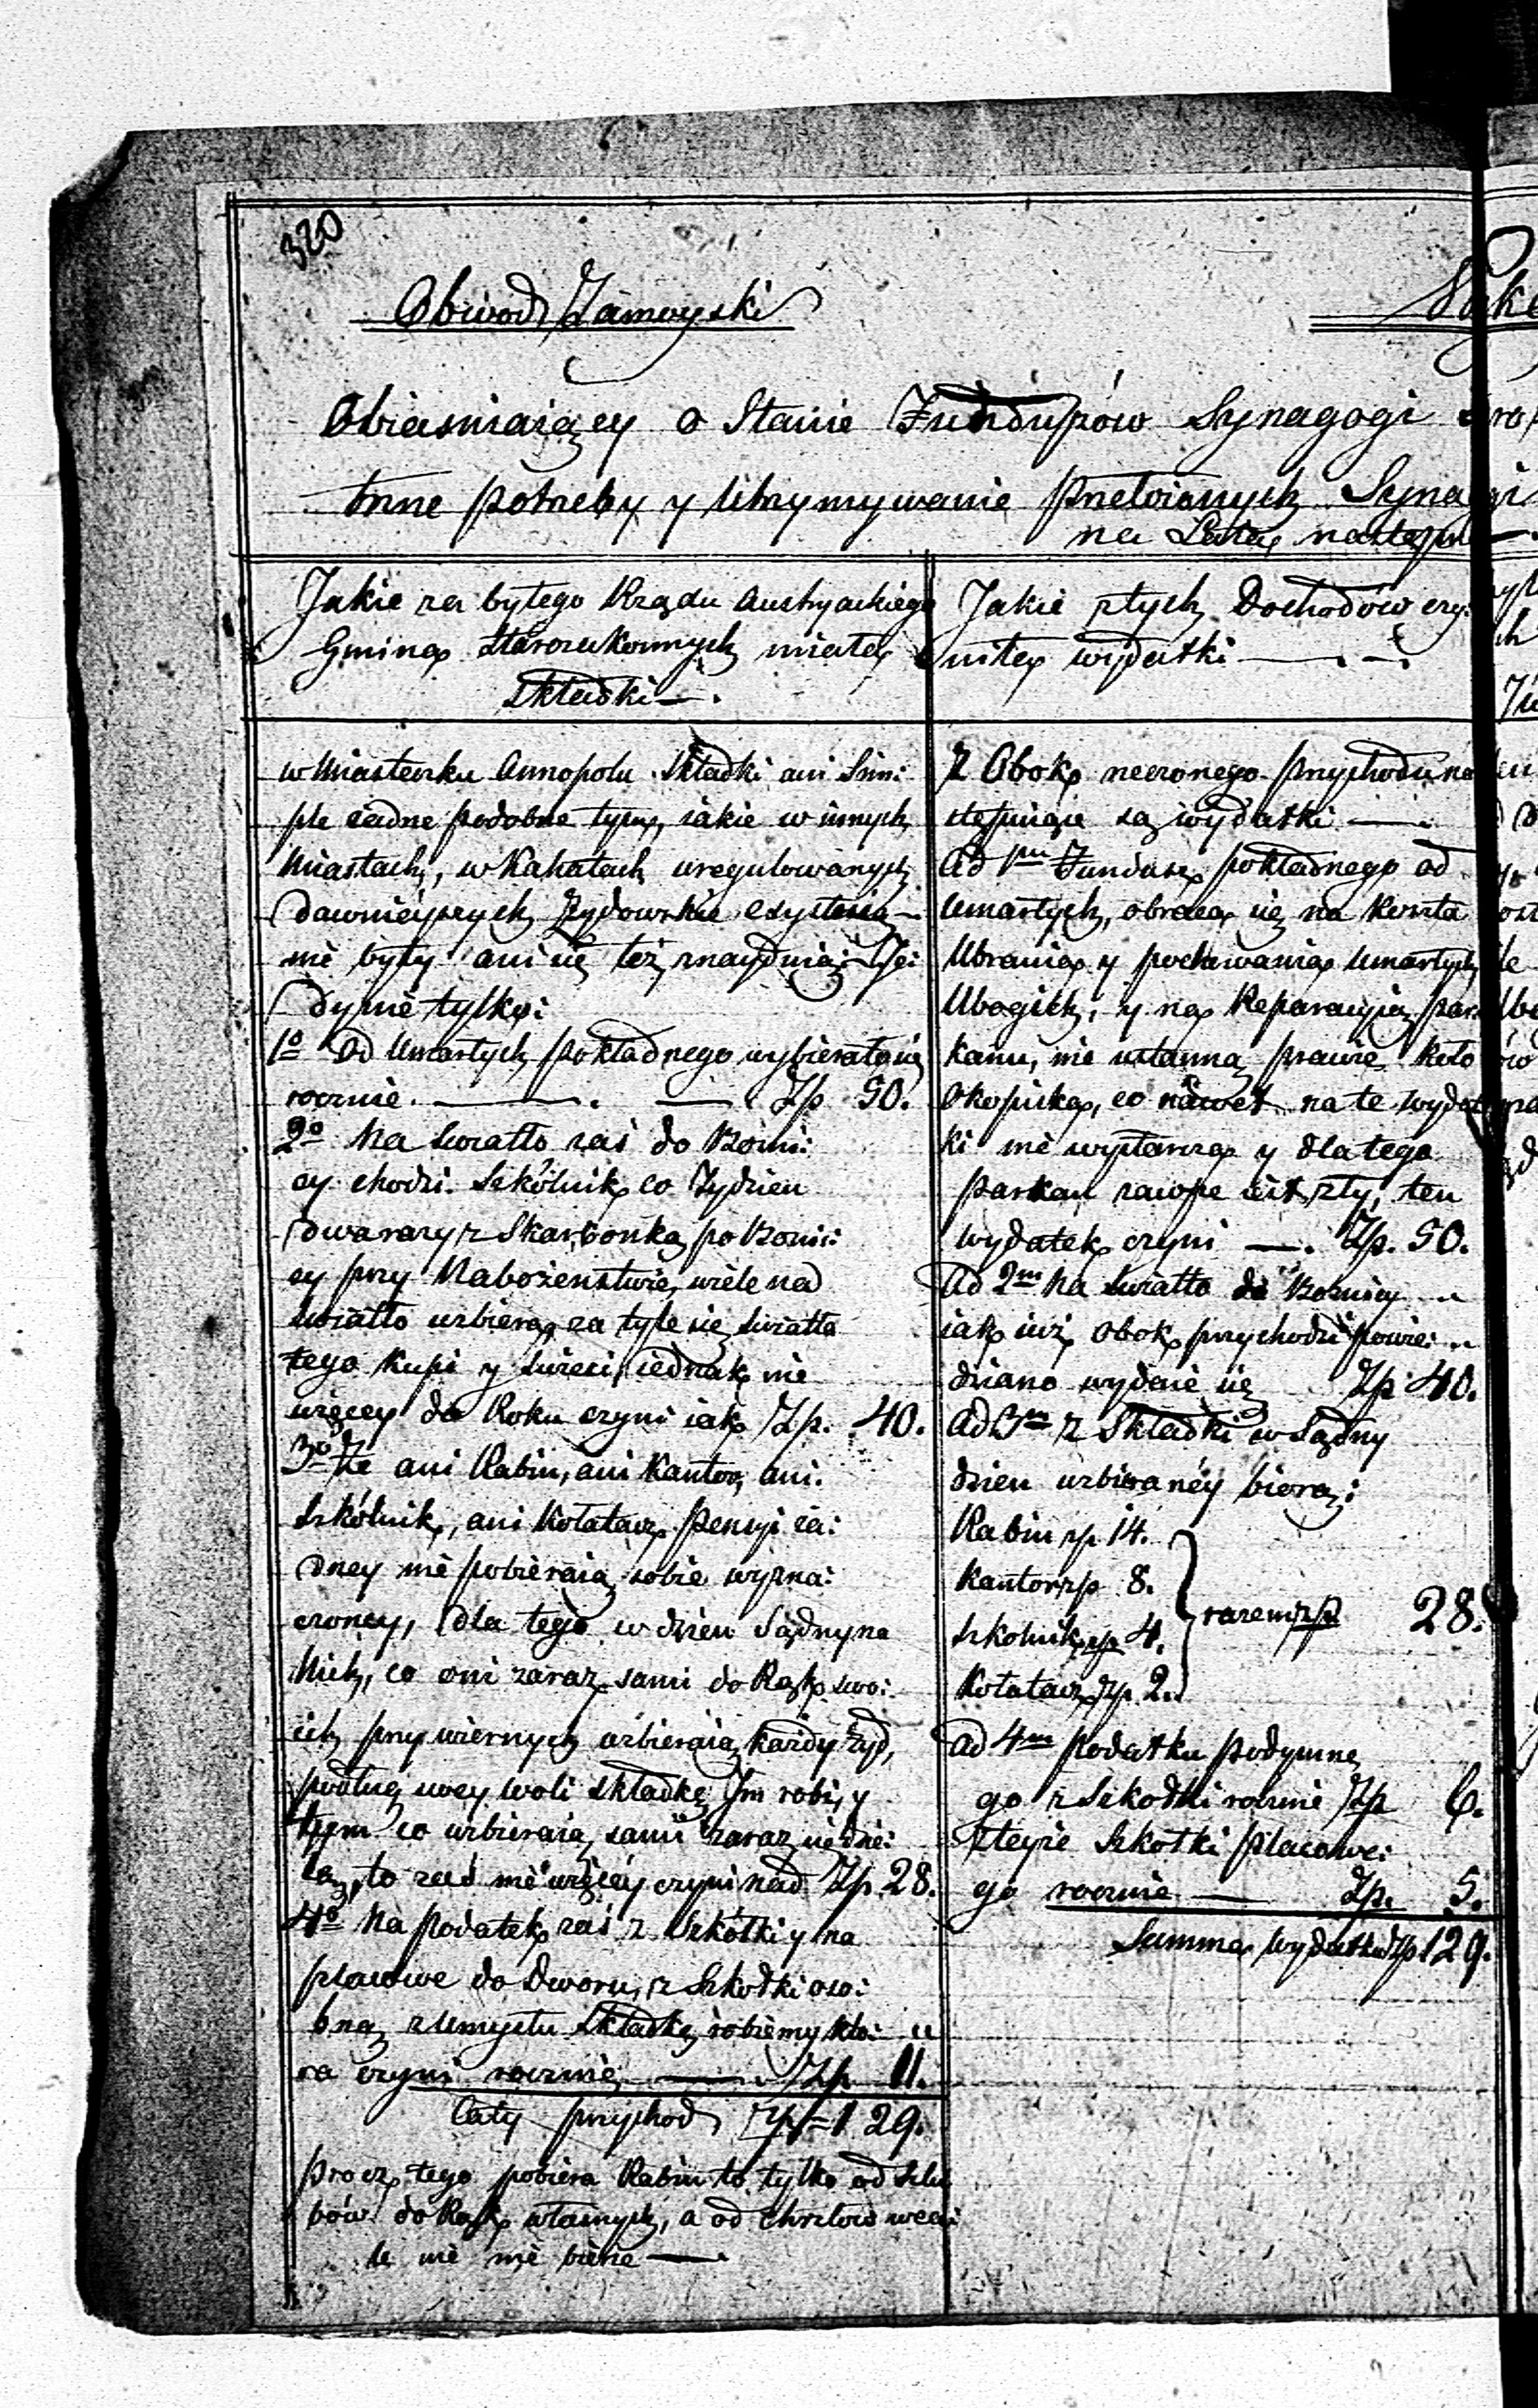 320
Obwod Zamoyski
Obiasniaiący o Stanie Funduszów Synagogi
Inne potrzeby y Utrzymywanie Synagogi
na Lata następne
Jakie za byłego Rządu Austryackiego
Gmina Starozakonnych miała
Składki —.
w Miasteczku Annopolu Składki ani Sim:
ple żadne podobne tym, iakie w innych
Miastach, w Kahałach uregulowanych
dawnieyszych Żydowskie
nie były ani się też znayduią. Je:
dynie tylko:
1o Od Umarłych pokładnego wybierało się
rocznie. —. — Zp 50.
2o Na Swiatło zaś do Bożni:
cy chodzi Szkólnik co Tydzien
dwa razy z Skarbonką po Bożni:
cy przy Nabożenstwie, wiele na
Swiatło uzbiera, za tyle się swiatła
tego kupi y swieci, iednak nie
więcey do Roku czyni iak Zp. 40.
3o Że ani Rabin, ani Kantor, ani
Szkólnik, ani Kołatacz Pensyi ża:
dney nie pobieraią sobie wyzna:
czoney, dla tego w dzien Sądny na
Nich, co oni zaraz sami do Rąk swo:
ich przy wiernych uzbieraią, każdy Żyd,
podług swey woli składkę Im robi, y
tym co uzbieraią, sami zaraz się dzie:
lą, to zaś nie więcéy czyni nad Zp. 28.
4o Na podatek zaś z Szkółki y na
placowe do Dworu, z Szkołki oso:
bną z Umysłu Składkę robiemy któ:
ra czyni rocznie — Zp 11.
Cały przychod Zp = 129.
Procz tego pobiera Rabin to tylko od Szlu
bów do Rąk własnych, a od Chrztów wca:
le nic nie bierze —
Jakie z tych Dochodów czy:
niła wydatki —. —.
Z Obok rzeczonego przychodu na
stępuiące są wydatki —
Ad 1um Fundusz pokładnego od
Umarłych, obraca się na koszta
Ubrania y pochowania Umarłych
Ubogich, y na Reparacyią par
kanu, nie ustanną prawie koło
Okopiska, co nawet na te wydat
ki nie wystarcza y dla tego
parkan zawsze iest zły, ten
wydatek czyni —. Zp. 50.
Ad 2um Na Swiatło do Bożnicy
iak iuż obok przychodzi powie:
dziano wydaie się Zp 40.
Ad 3um Z Składki w Sądny
dzien uzbieranéy biorą:
Rabin zp 14.
Kantor zp 8.
Szkolnik zp 4.
Kołatacz zp 2.
razem zp 28.
Ad 4um Podatku podymne
go z Szkołki rocznie Zp 6.
Z teyże Szkołki placowe:
go rocznie — Zp. 5.
Summa wydatku Zp 129.